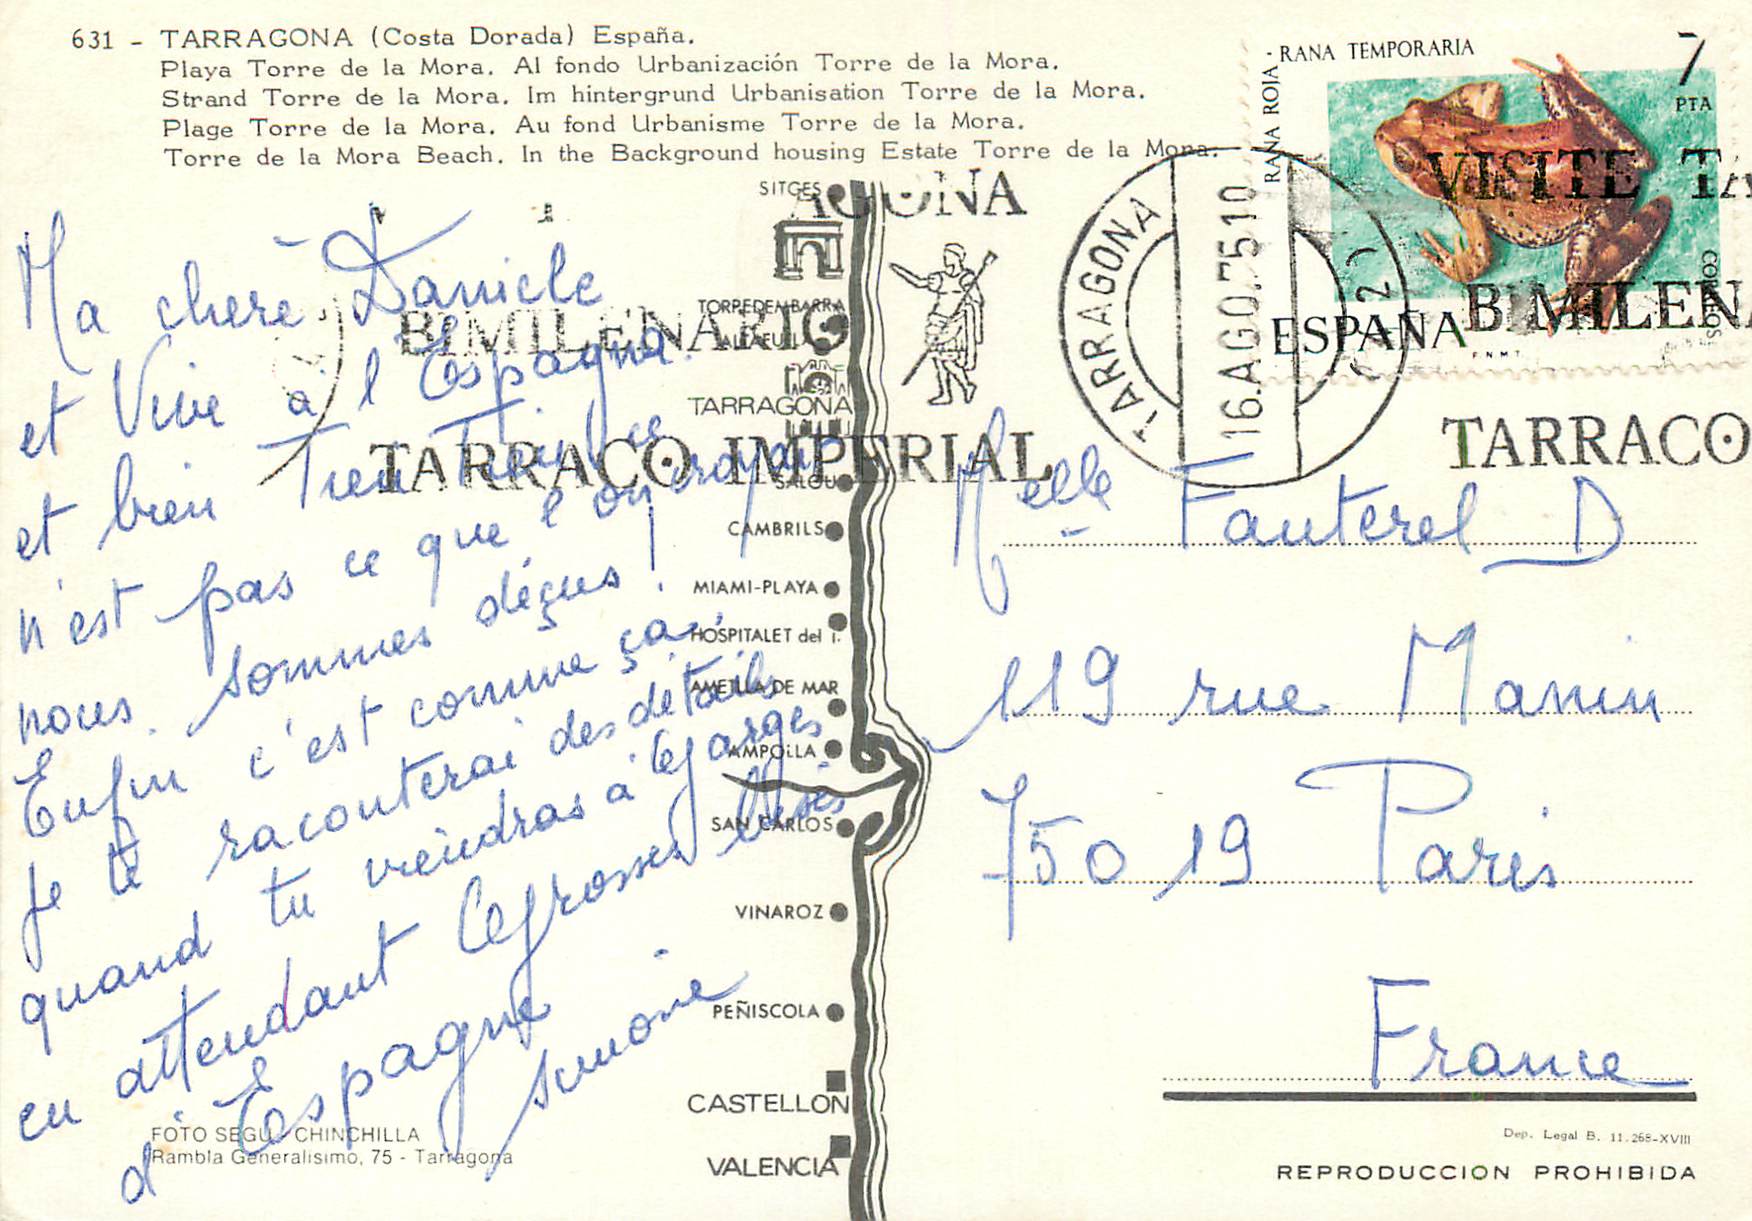 631 - TARRAGONA (Costa Dorada) España.
Playa Torre de la Mora. Al fondo Urbanización Torre de la Mora.
Strand Torre de la Mora. Im hintergrund Urbanisation Torre de la Mora.
Plage Torre de la Mora. Au fond Urbanisme Torre de la Mora.
Torre de la Mora Beach. In the Background housing Estate Torre de la Mora.
Ma chère Danièle
et Vive à l'Espagne.
et bien Tien Tien ce
n'est pas ce que l'on croyait
nous sommes déçus!
Enfin c'est comme ça.
Je te raconterai des détails
quand tu viendras à Garges
en attendant grosses bises
d'Espagne
Simone
FOTO SEGU - CHINCHILLA
Rambla Generalisimo, 75 - Tarragona
SITGES
TORREDEMBARRA
ALTAFULLA
TARRAGONA
SALOU
CAMBRILS
MIAMI-PLAYA
HOSPITALET del I.
AMETLLA DE MAR
AMPOLLA
SAN CARLOS
VINAROZ
PEÑISCOLA
CASTELLON
VALENCIA
AGONA
BIMILENARIO
TARRACO IMPERIAL
TARRAGONA
16.AGO.75 10
VISITE TA
BIMILENA
TARRACO
RANA TEMPORARIA
RANA ROJA
7
PTA
CORREOS
ESPAÑA
F N M T
Melle Fauterel D
119 rue Manin
75019 Paris
France
Dep. Legal B. 11.268-XVIII
REPRODUCCION PROHIBIDA